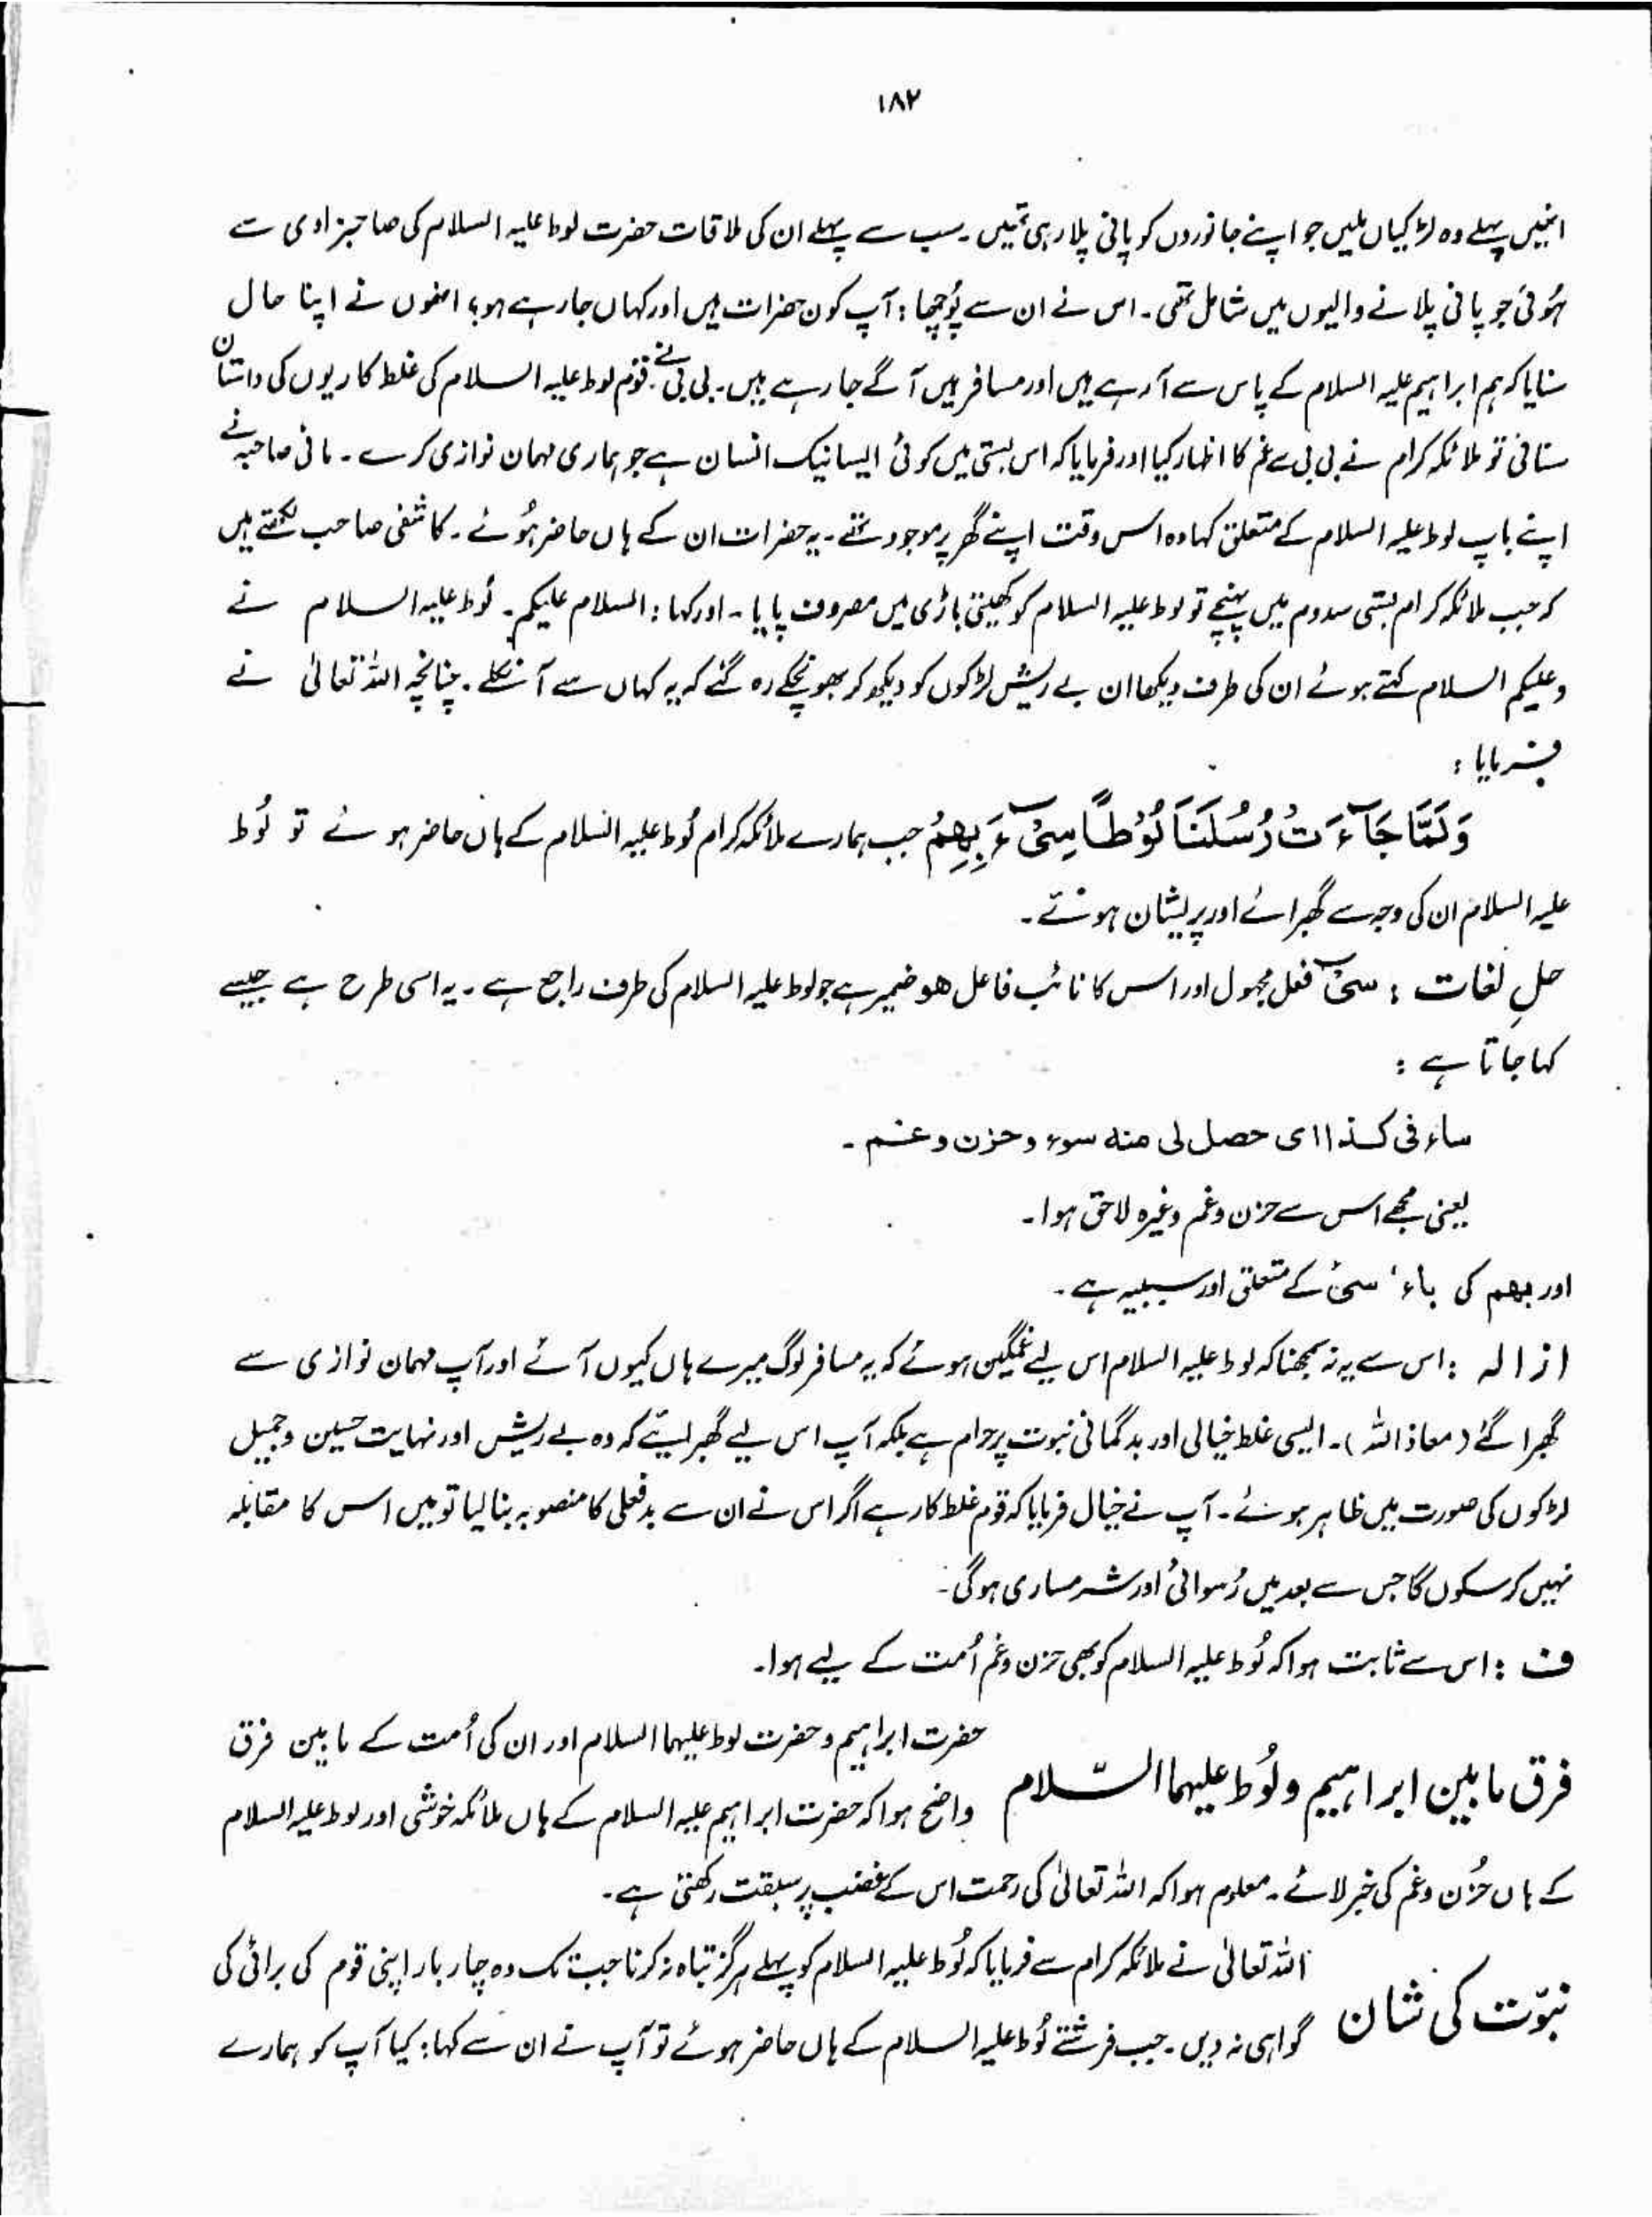 ۱۸۲
انہیں پہلے وہ لڑکیاں ملیں جو اپنے جانوروں کو پانی پلا رہی تھیں۔ سب سے پہلے ان کی ملاقات حضرت لوط علیہ السلام کی صاحبزادی سے
ہُوئی جو پانی پلانے والیوں میں شامل تھی۔ اس نے ان سے پُوچھا: آپ کون حضرات ہیں اور کہاں جا رہے ہو؟ انھوں نے اپنا حال
سنایا کہ ہم ابراہیم علیہ السلام کے پاس سے آ رہے ہیں اور مسافر ہیں آگے جا رہے ہیں۔ بی بی نے قوم لوط علیہ السلام کی غلط کاریوں کی داستان
سنائی تو ملائکہ کرام نے بی بی سے غم کا اظہار کیا اور فرمایا کہ اس بستی میں کوئی ایسا نیک انسان ہے جو ہماری مہمان نوازی کرے۔ مائی صاحبہ نے
اپنے باپ لوط علیہ السلام کے متعلق کہا وہ اس وقت اپنے گھر پر موجود تھے۔ یہ حضرات ان کے ہاں حاضر ہُوئے۔ کاشفی صاحب لکھتے ہیں
کہ جب ملائکہ کرام بستی سدوم میں پہنچے تو لوط علیہ السلام کو کھیتی باڑی میں مصروف پایا۔ اور کہا: السلام علیکم۔ لُوط علیہ السلام نے
وعلیکم السلام کہتے ہوئے ان کی طرف دیکھا ان بے ریش لڑکوں کو دیکھ کر بھونچکے رہ گئے کہ یہ کہاں سے آ نکلے۔ چنانچہ اللہ تعالیٰ نے
فرمایا:
وَلَمَّا جَآءَتْ رُسُلُنَا لُوْطًا سِیْٓءَ بِھِمْ جب ہمارے ملائکہ کرام لُوط علیہ السلام کے ہاں حاضر ہوئے تو لُوط
علیہ السلام ان کی وجہ سے گھبرائے اور پریشان ہوئے۔
حلِ لغات : سیٓئ فعل مجہول اور اس کا نائب فاعل ھو ضمیر ہے جو لوط علیہ السلام کی طرف راجع ہے۔ یہ اسی طرح ہے جیسے
کہا جاتا ہے :
ساء فی کذا ای حصل لی منه سوء و حزن و غم۔
یعنی مجھے اس سے حزن و غم وغیرہ لاحق ہوا۔
اور بھم کی باء، سئ کے متعلق اور سببیہ ہے۔
ازالہ : اس سے یہ نہ سمجھنا کہ لوط علیہ السلام اس لیے غمگین ہوئے کہ یہ مسافر لوگ میرے ہاں کیوں آئے اور آپ مہمان نوازی سے
گھبرا گئے (معاذ اللہ)۔ ایسی غلط خیالی اور بدگمانی نبوت پر حرام ہے بلکہ آپ اس لیے گھبرائے کہ وہ بے ریش اور نہایت حسین و جمیل
لڑکوں کی صورت میں ظاہر ہوئے۔ آپ نے خیال فرمایا کہ قوم غلط کار ہے اگر اس نے ان سے بدفعلی کا منصوبہ بنا لیا تو میں اس کا مقابلہ
نہیں کر سکوں گا جس سے بعد میں رُسوائی اور شرمساری ہوگی۔
ف : اس سے ثابت ہوا کہ لُوط علیہ السلام کو بھی حزن و غم اُمت کے لیے ہوا۔
فرق مابین ابراہیم و لُوط علیہما السّلام
حضرت ابراہیم و حضرت لوط علیہما السلام اور ان کی اُمت کے مابین فرق
واضح ہوا کہ حضرت ابراہیم علیہ السلام کے ہاں ملائکہ خوشی اور لوط علیہ السلام
کے ہاں حُزن و غم کی خبر لائے۔ معلوم ہوا کہ اللہ تعالیٰ کی رحمت اس کے غضب پر سبقت رکھتی ہے۔
نبوّت کی شان
اللہ تعالیٰ نے ملائکہ کرام سے فرمایا کہ لُوط علیہ السلام کو پہلے ہرگز تباہ نہ کرنا جب تک وہ چار بار اپنی قوم کی برائی کی
گواہی نہ دیں۔ جب فرشتے لُوط علیہ السلام کے ہاں حاضر ہوئے تو آپ نے ان سے کہا: کیا آپ کو ہمارے